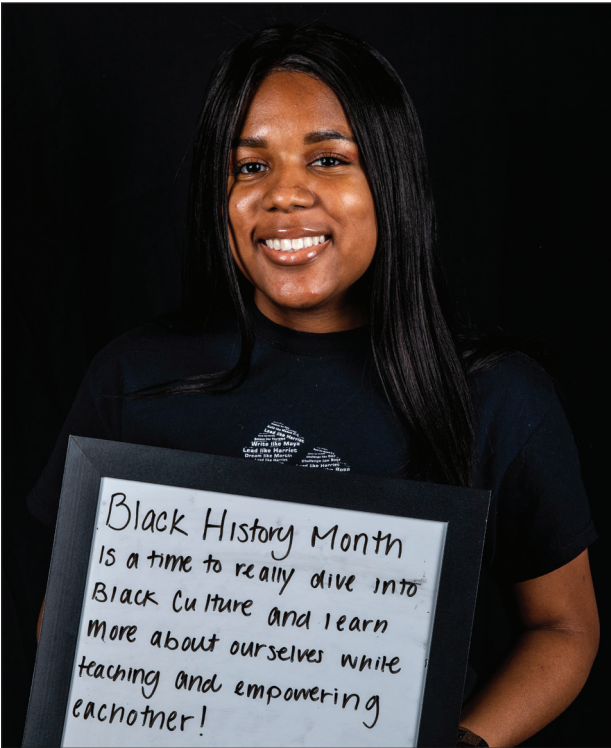 Lead like Harriet
Write like Maya
Lead like Harriet
Dream like Martin
Challenge like Rosa
Lead like Harriet
Black History Month
is a time to really dive into
Black Culture and learn
more about ourselves while
teaching and empowering
eachother!